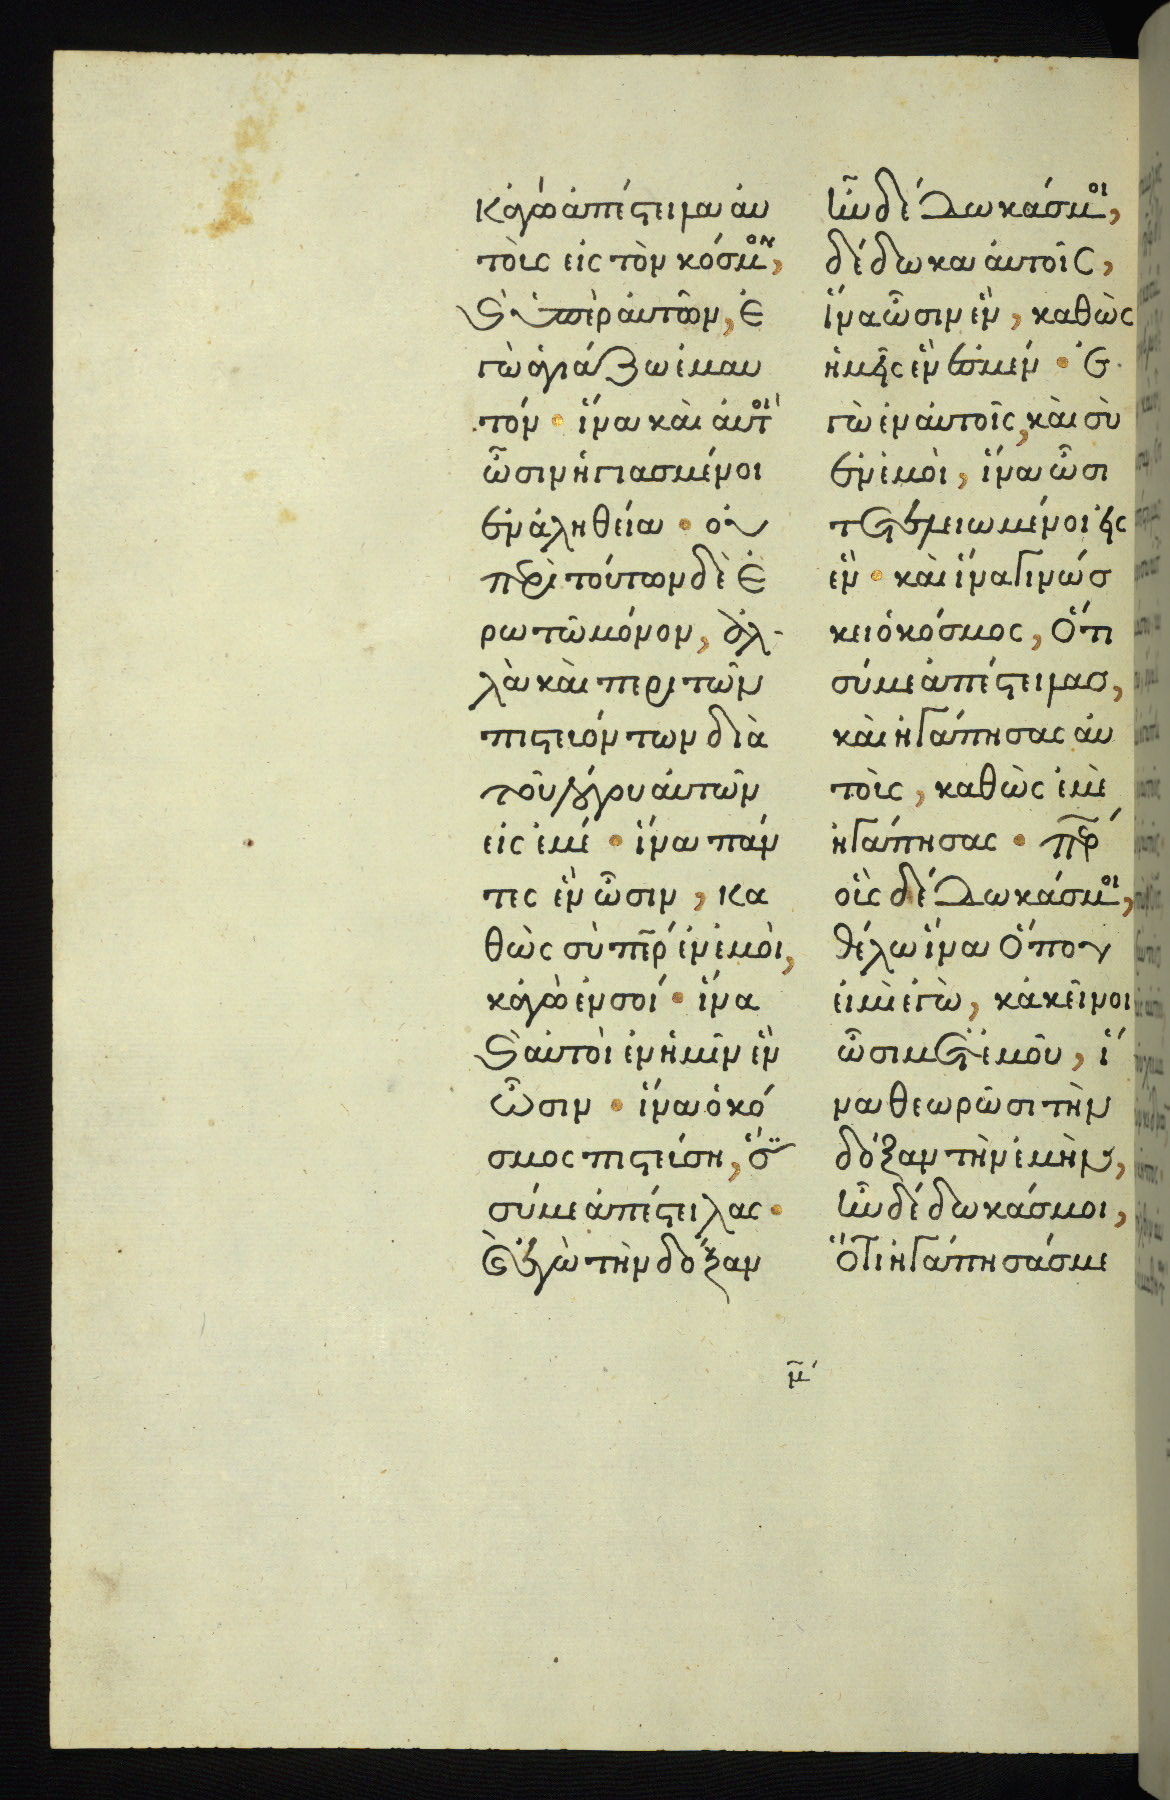 κἀγὼ ἀπέστειλα αὐ
τοὺς εἰς τὸν κόσμον,
καὶ ὑπὲρ αὐτῶν, ἐ
γὼ ἁγιάζω ἐμαυ
τόν · ἵνα καὶ αὐτοὶ
ὦσιν ἡγιασμένοι
ἐν ἀληθεία · οὐ
περὶ τούτων δὲ ἐ
ρωτῶ μόνον, ἀλ-
λὰ καὶ περὶ τῶν
πιστευόντων διὰ
τοῦ λόγου αὐτῶν
εἰς ἐμέ · ἵνα πάν
τες ἓν ὦσιν, κα
θὼς σὺ πῆρ ἐν ἐμοὶ,
κἀγὼ ἐν σοί · ἵνα
καὶ αὐτοὶ ἐν ἡμῖν ἓν
ὦσιν · ἵνα ὁ κό
σμος πιστεύση, ὅτι
σύ με ἀπέστειλας ·
καὶ ἐγὼ τὴν δόξαν
ἣν δέδωκάς μοι,
δέδωκα αὐτοῖς,
ἵνα ὦσιν ἓν, καθὼς
ἡμεῖς ἕν ἐσμεν · ἐ
γὼ ἐν αὐτοῖς, καὶ σὺ
ἐν ἐμοὶ, ἵνα ὦσι
τετελειωμένοι εἰς
ἓν · καὶ ἵνα γινώσ
κει ὁ κόσμος, ὅτι
σύ με ἀπέστειλας,
καὶ ἠγάπησας αὐ
τοὺς, καθὼς ἐμὲ
ἠγάπησας · πῆρ
οὓς δέδωκάς μοι,
θέλω ἵνα ὅπου
εἰμὶ ἐγὼ, κἀκεῖνοι
ὦσι μετ' ἐμοῦ, ἵ
να θεωρῶσι τὴν
δόξαν τὴν ἐμὴν,
ἣν δέδωκάς μοι,
ὅτι ἠγάπησάς με
μ̃